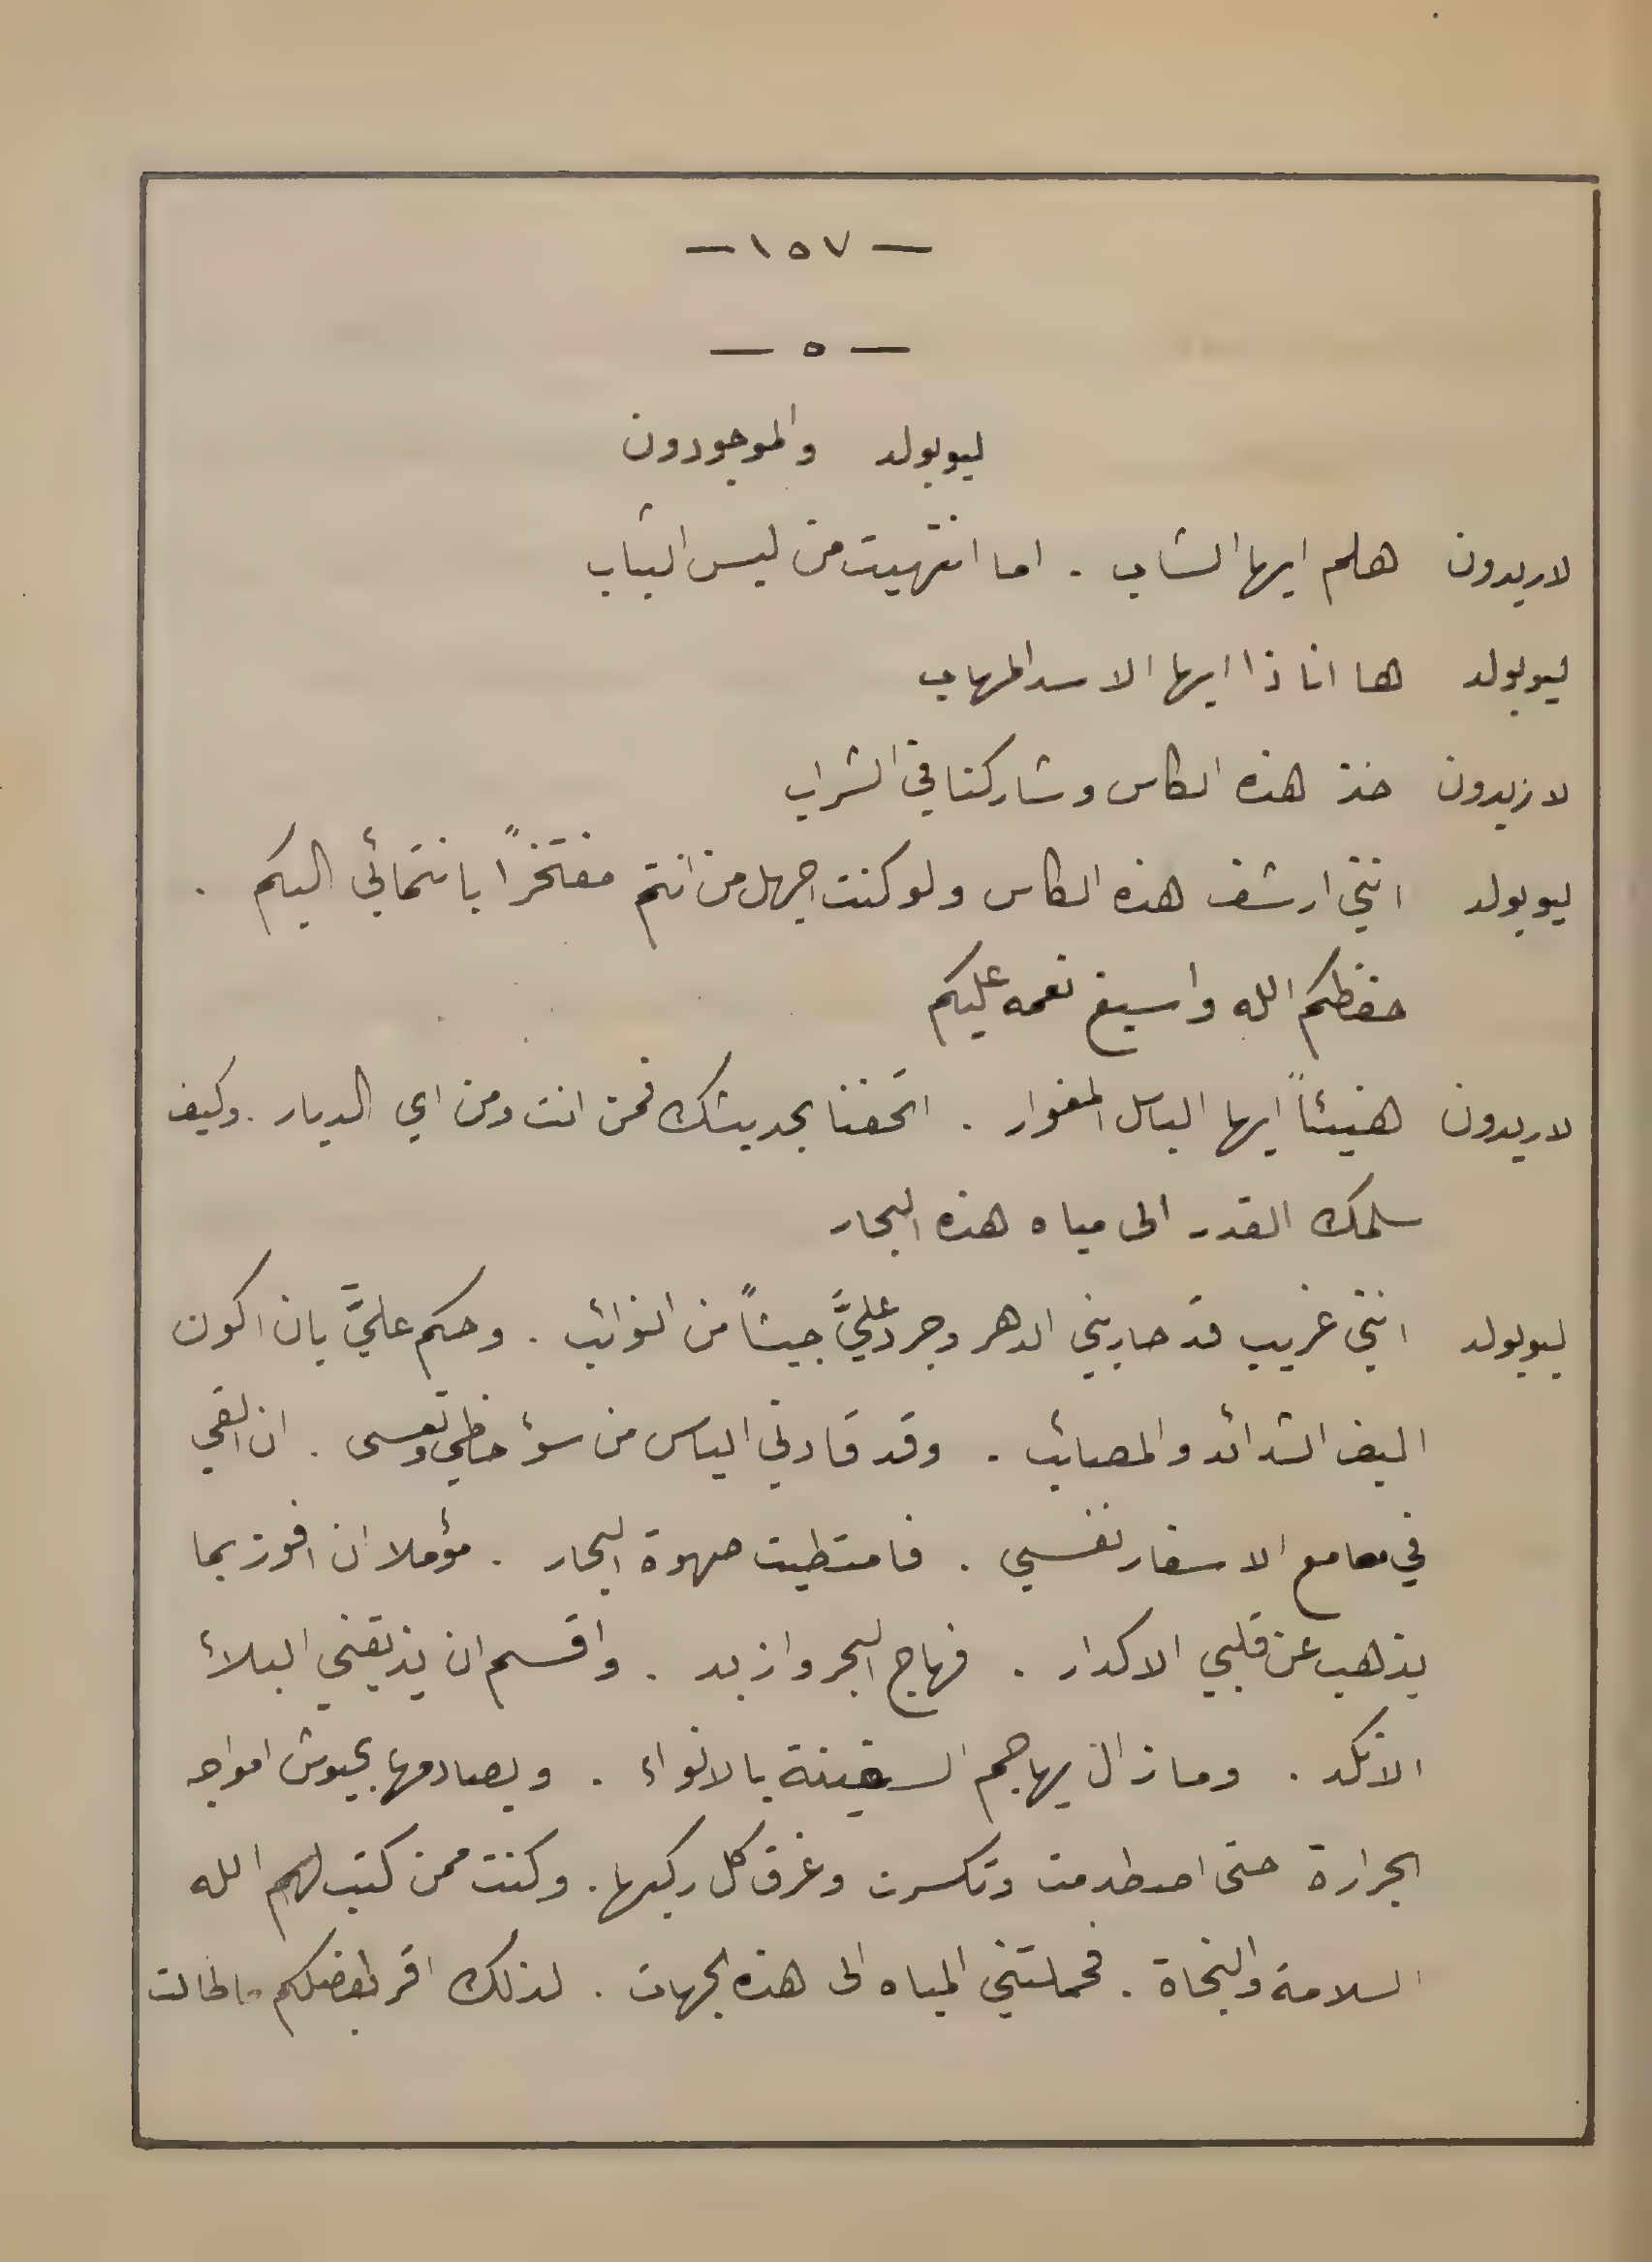 — ١٥٧ —
— ٥ —
ليوبولد والموجودون
لاريدون هلم ايها الشاب . اما انتهيت من لبس الثياب
ليوبولد ها انا ذا ايها الاسد المهاب
لازيدون خذ هذه الكاس وشاركنا في الشراب
ليوبولد انني ارشف هذه الكاس ولو كنت اجهل من انتم مفتخراً بانتمائي اليكم .
حفظكم الله واسبغ نعمه عليكم
لاريدون هنيئاً ايها الباسل المغوار . اتحفنا بحديثك فمن انت ومن اي الديار . وكيف
سلمك القدر الى مياه هذه البحار
ليوبولد انني غريب قد حاربني الدهر وجرد عليَّ جيشاً من النوائب . وحكم عليَّ بان اكون
اليف الشدائد والمصائب . وقد قادني الياس من سؤ حظي وتعسى . ان القي
في معامع الاسفار نفسي . فامتطيت صهوة البحار . مؤملا ان افوز بما
يذهب عن قلبي الاكدار . فهاج البحر وازبد . واقسم ان يذيقني البلاء
الانكد . وما زال يهاجم السفينة بالانواء . ويصادمها بجيوش امواجه
الجرارة حتى اصطدمت وتكسرت وغرق كل ركبها . وكنت ممن كتب لهم الله
السلامة والنجاة . فحملتني المياه الى هذه الجهات . لذلك اقر بفضلكم ما طالت